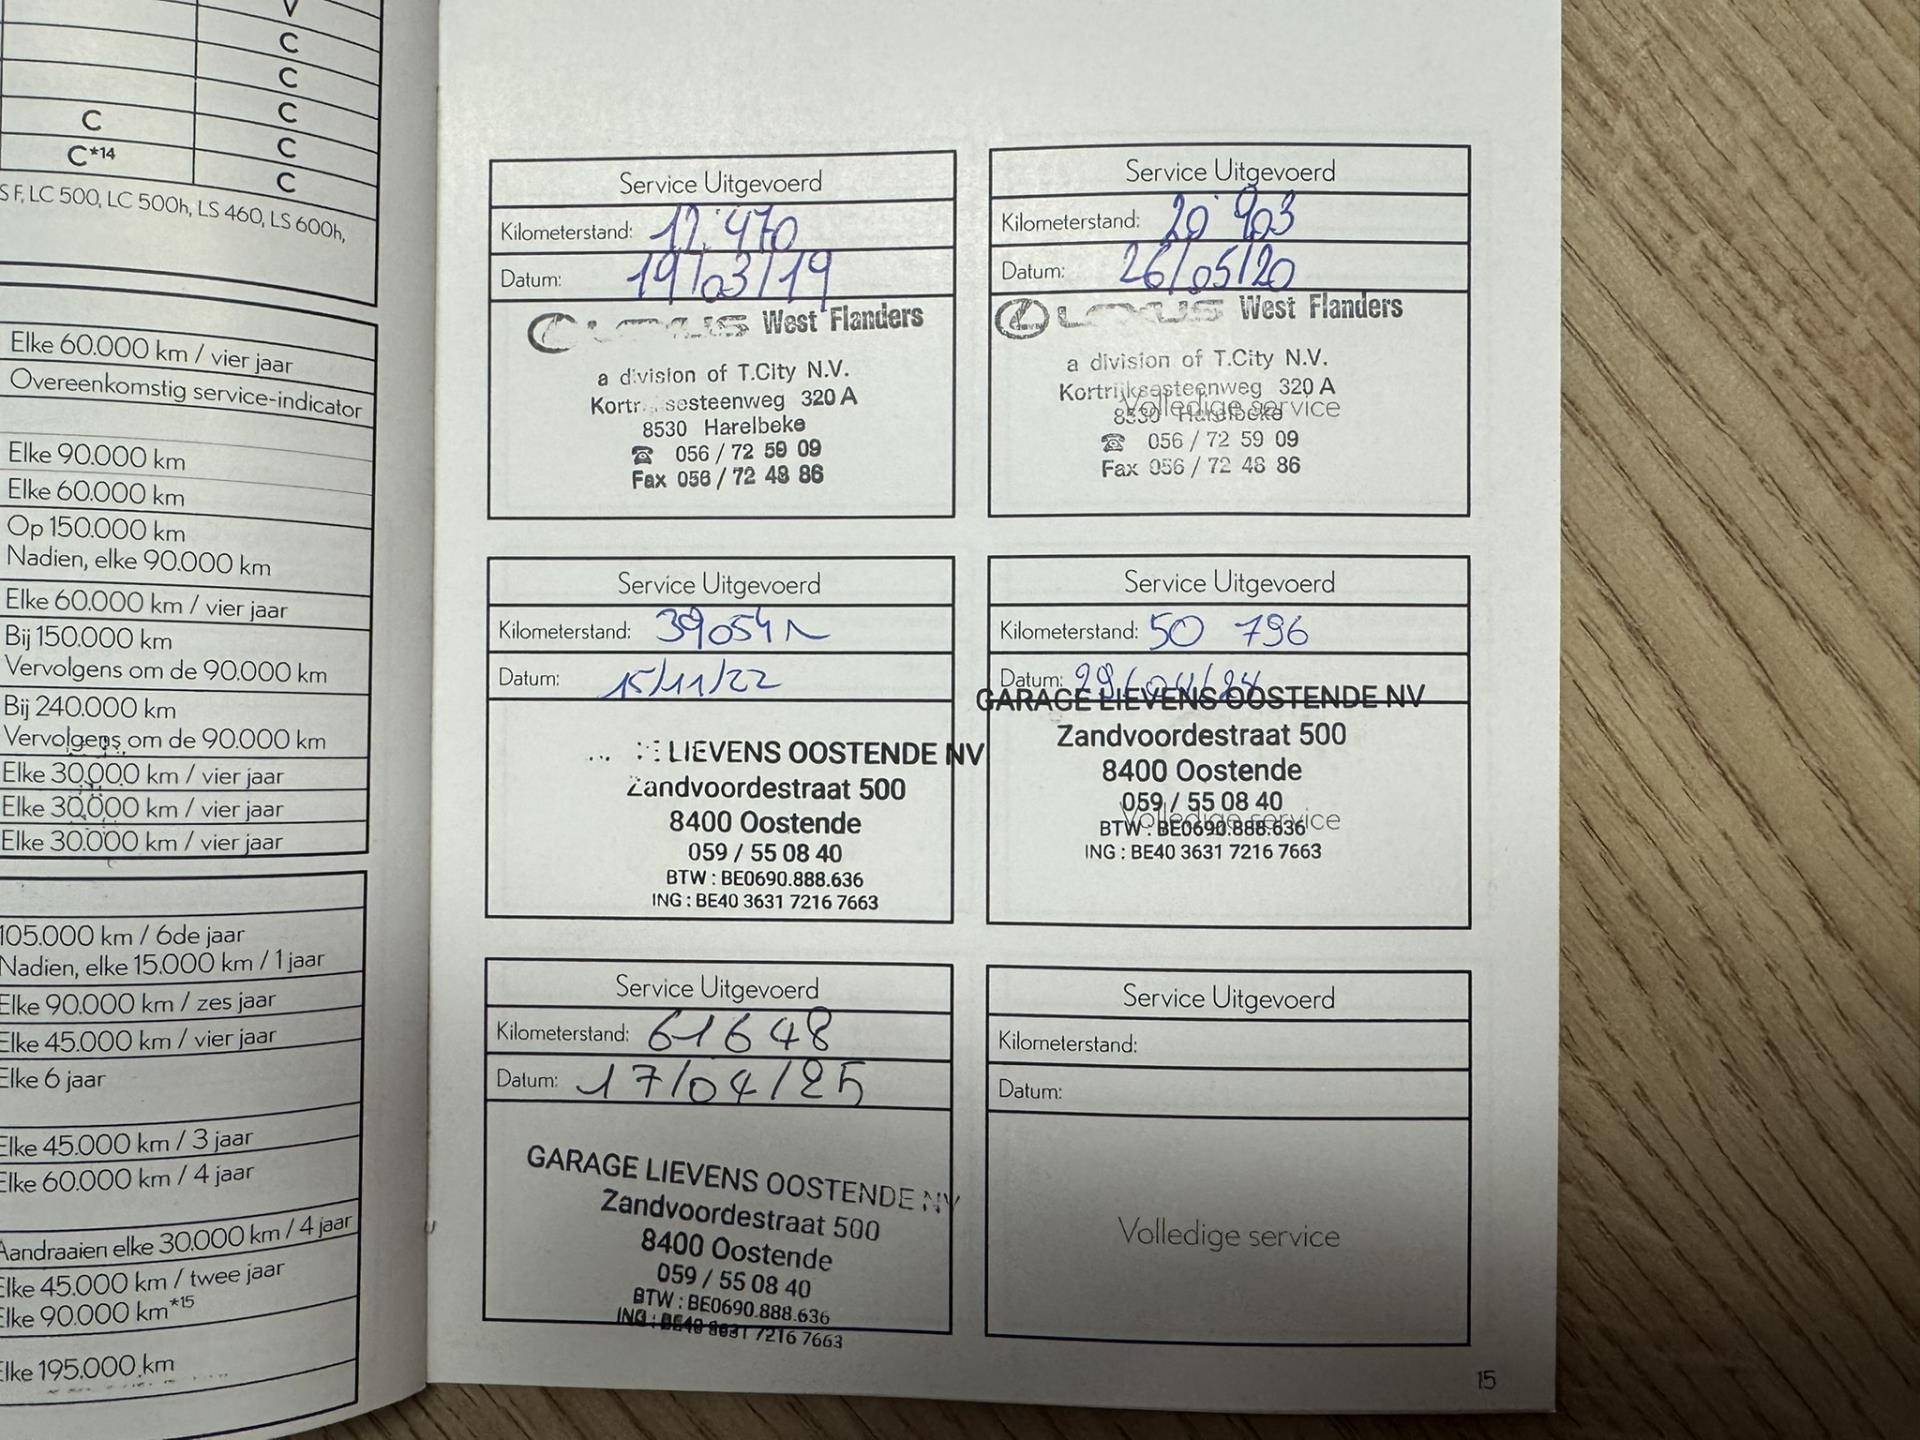 V
C
C
C
C C
C*14 C
S F, LC 500, LC 500h, LS 460, LS 600h,
Elke 60.000 km / vier jaar
Overeenkomstig service-indicator
Elke 90.000 km
Elke 60.000 km
Op 150.000 km
Nadien, elke 90.000 km
Elke 60.000 km / vier jaar
Bij 150.000 km
Vervolgens om de 90.000 km
Bij 240.000 km
Vervolgens om de 90.000 km
Elke 30.000 km / vier jaar
Elke 30.000 km / vier jaar
Elke 30.000 km / vier jaar
105.000 km / 6de jaar
Nadien, elke 15.000 km / 1 jaar
Elke 90.000 km / zes jaar
Elke 45.000 km / vier jaar
Elke 6 jaar
Elke 45.000 km / 3 jaar
Elke 60.000 km / 4 jaar
Aandraaien elke 30.000 km / 4 jaar
Elke 45.000 km / twee jaar
Elke 90.000 km*15
Elke 195.000 km
Service Uitgevoerd
Kilometerstand: 12.470
Datum: 19/03/19
LEXUS West Flanders
a division of T.City N.V.
320 A
8530 Harelbeke
☎ 056 / 72 59 09
Fax 056 / 72 48 86
Service Uitgevoerd
Kilometerstand: 20 903
Datum: 26/05/20
LEXUS West Flanders
a division of T.City N.V.
Kortrijksesteenweg 320 A
8530 Harelbeke
Volledige service
☎ 056 / 72 59 09
Fax 056 / 72 48 86
Service Uitgevoerd
Kilometerstand: 39054
Datum: 15/11/22
LIEVENS OOSTENDE NV
Zandvoordestraat 500
8400 Oostende
059 / 55 08 40
BTW : BE0690.888.636
ING : BE40 3631 7216 7663
Service Uitgevoerd
Kilometerstand: 50 796
Datum: 29/04/24
GARAGE LIEVENS OOSTENDE NV
Zandvoordestraat 500
8400 Oostende
059 / 55 08 40
Volledige service
BTW : BE0690.888.636
ING : BE40 3631 7216 7663
Service Uitgevoerd
Kilometerstand: 61648
Datum: 17/04/25
GARAGE LIEVENS OOSTENDE NV
Zandvoordestraat 500
8400 Oostende
059 / 55 08 40
BTW : BE0690.888.636
ING : BE40 3631 7216 7663
Service Uitgevoerd
Kilometerstand:
Datum:
Volledige service
15